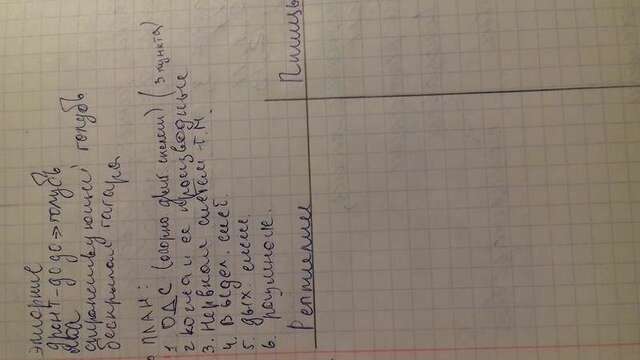 эпиорнис
дронт-додо => голубь
странствующий голубь
бескрылая гагара
ПЛАН:
1. ОДС (опорно двиг системы) (3 пункта)
2 кожа и ее производные
3. Нервная система Г.М.
4. Выдел. сист.
5. дых. сист.
6. размнож.
Рептилии Птицы